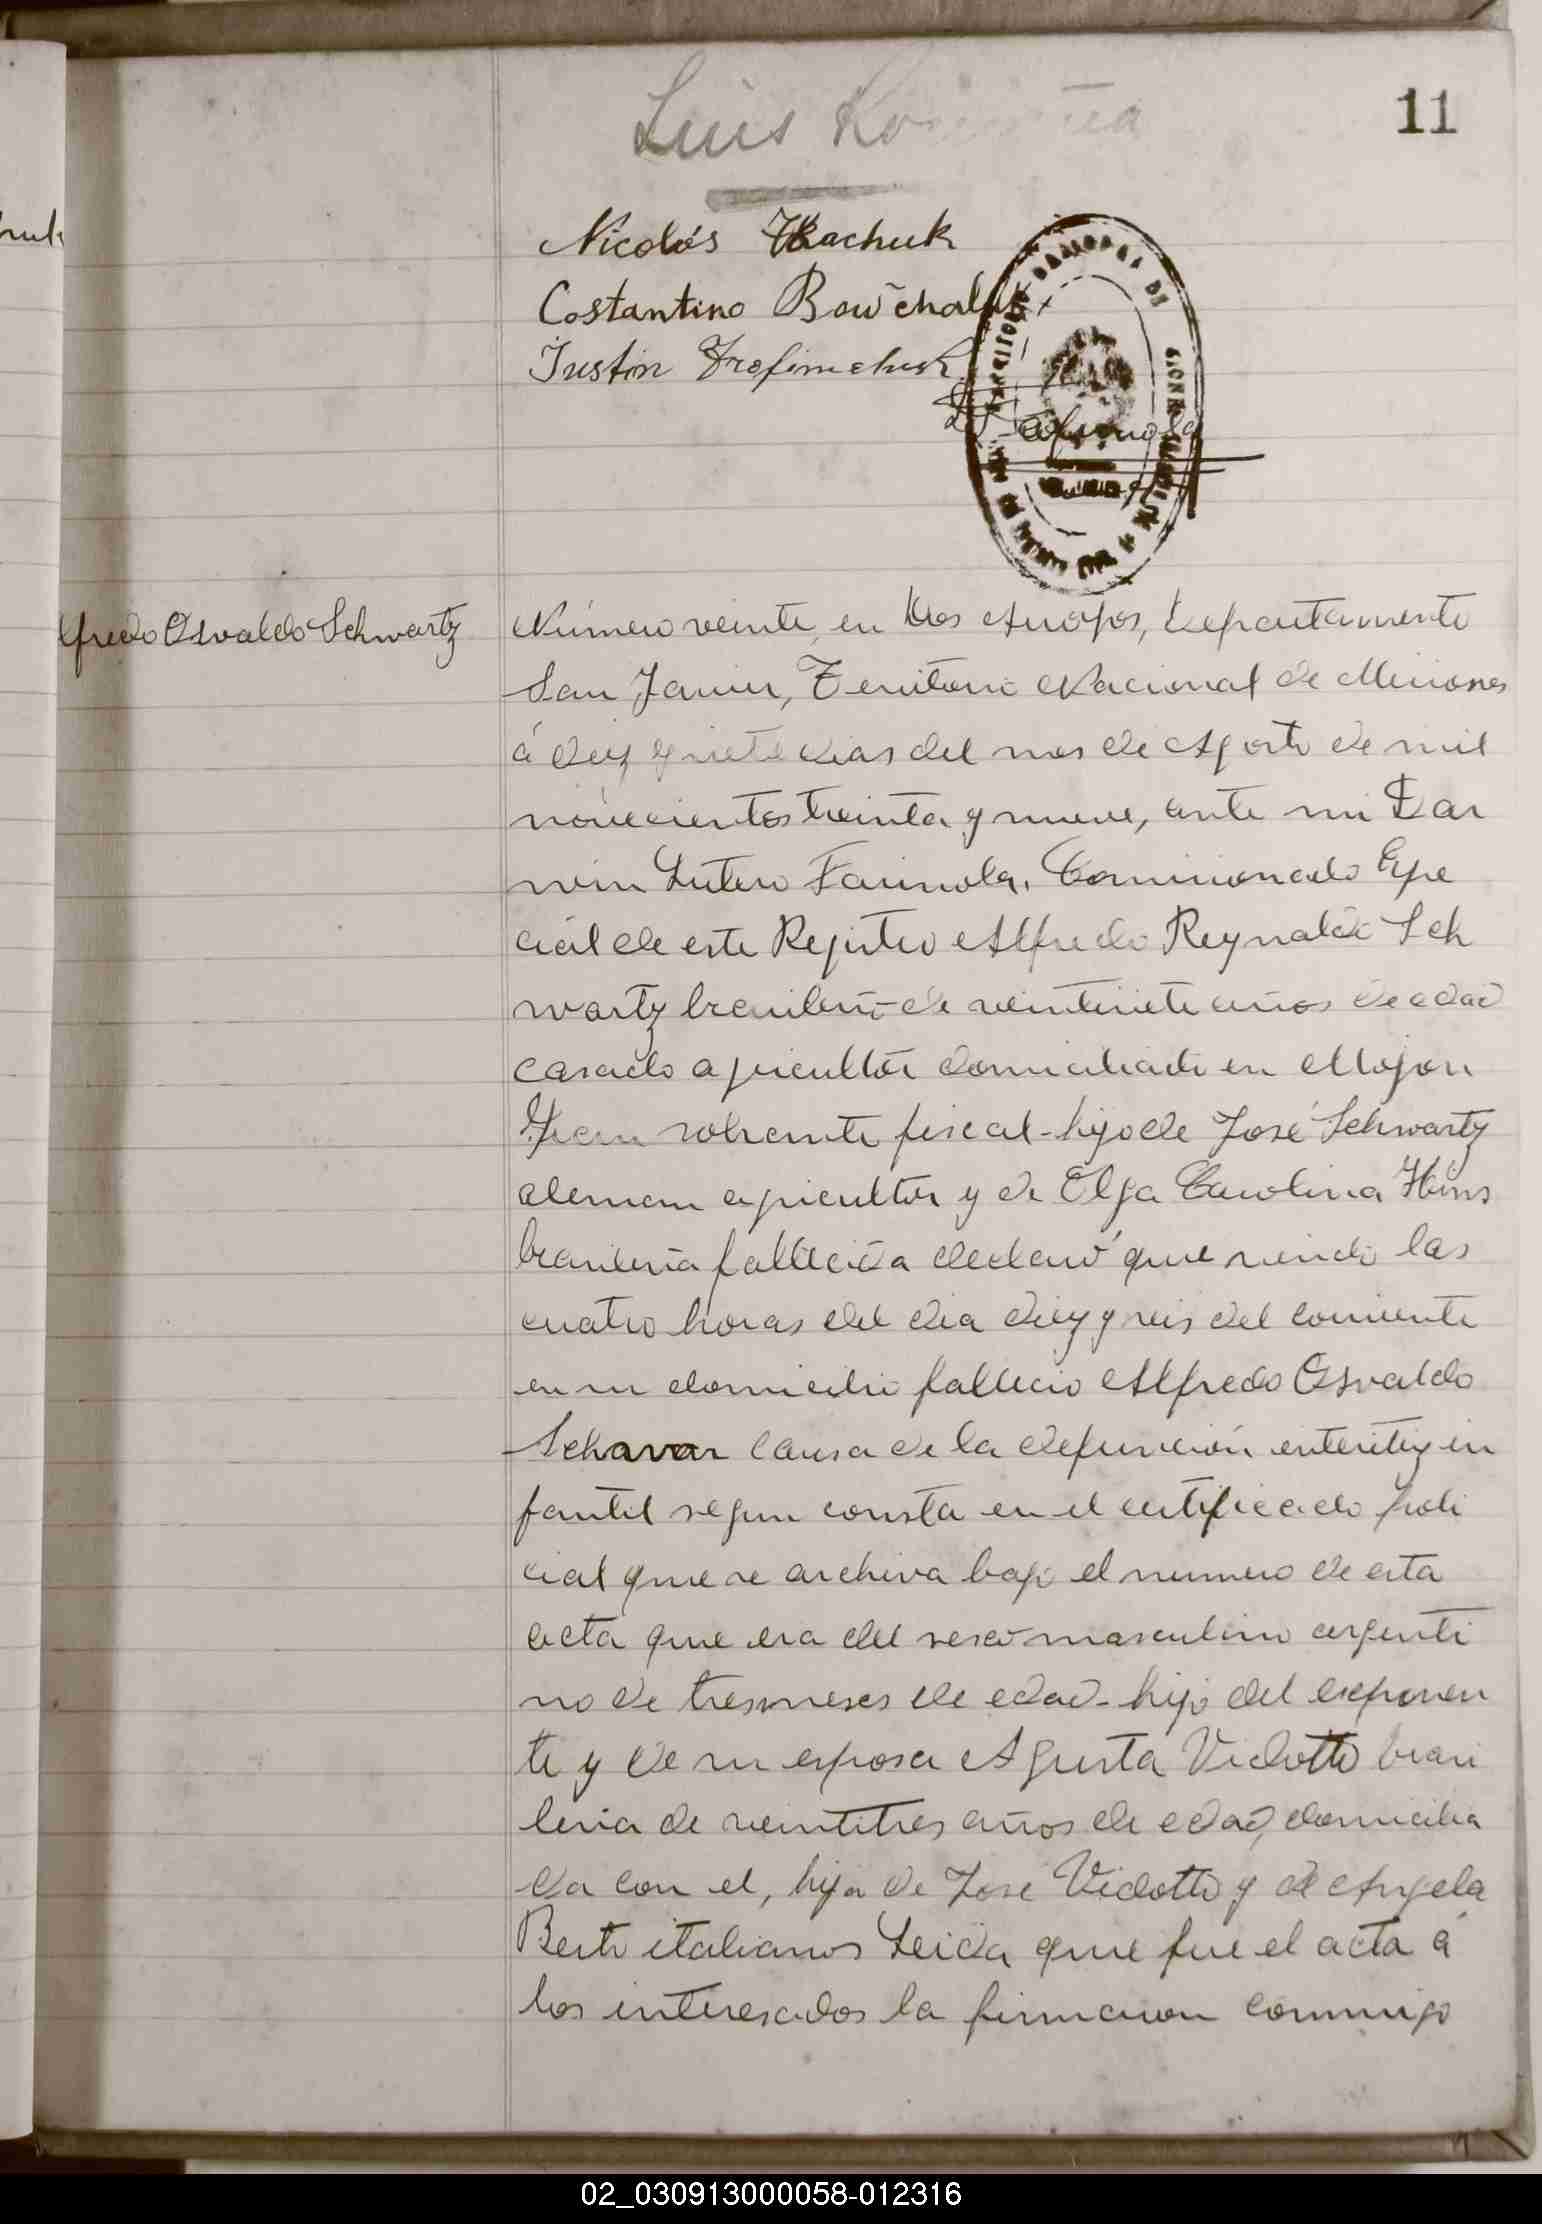 11
Luis
Nicolás Tkachuk
Costantino Bowchaluk
Justin Trofimchuk
lfredo Osvaldo Schwartz
Número veinte, en Dos Arroyos, Departamento
San Javier, Territorio Nacional de Misiones
á diez y siete dias del mes de Agosto de mil
novecientos treinta y nueve, ante mi Dar
win Lutero Farinola, Comisionado Espe
cial de este Registro Alfredo Reynaldo Sch
wartz brasileño de veintisiete años de edad
casado agricultor domiciliado en Mojon
Gran sobrante fiscal - hijo de José Schwartz
aleman agricultor y de Olga Carolina
brasileña fallecida declaró que siendo las
cuatro horas del dia diez y seis del corriente
en su domicilio fallecio Alfredo Osvaldo
Schawar causa de la defuncion enteritiz in
fantil segun consta en el certificado poli
cial que se archiva bajo el numero de esta
acta que era del sexo masculino argenti
no de tres meses de edad - hijo del exponen
te y de su esposa Agusta Vidotto brasi
leña de veintitres años de edad, domicilia
da con el, hija de José Vidotto y de Angela
Berto italianos Leida que fue el acta á
los interesados la firmaron conmigo
02_030913000058-012316